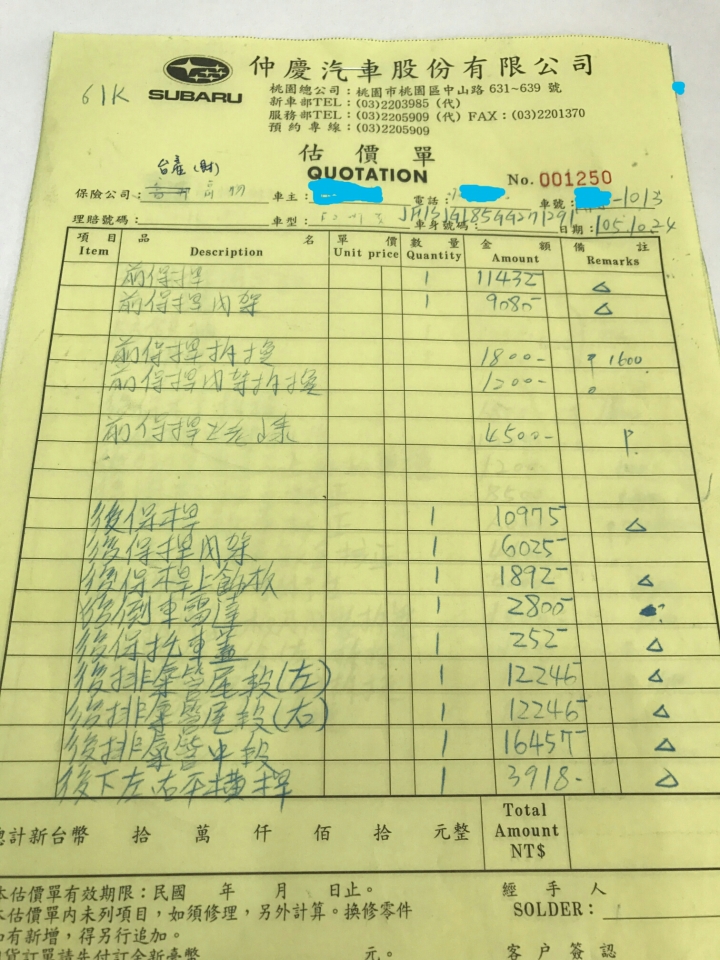 61K
SUBARU
仲慶汽車股份有限公司
桃園總公司：桃園市桃園區中山路 631~639 號
新車部TEL：(03)2203985 (代)
服務部TEL：(03)2205909 (代) FAX：(03)2201370
預約專線：(03)2205909
估價單
QUOTATION
No. 001250
台產(財)
保險公司： 車主： 電話： 車號： -1013
理賠號碼： 車型： 車身號碼： 日期：105.10.24
項目 品名 單價 數量 金額 備註
Item Description Unit price Quantity Amount Remarks
前保捍 1 11432 △
前保捍內架 1 9085 △
前保捍拆換 1800- 1600
前保捍內 拆換 1200-
前保捍 4500- P
後保捍 1 10975 △
後保捍內架 1 6025
後保捍上飾板 1 1892 △
後倒車雷達 1 2800 ?
後保扥車蓋 1 252 △
後排氣管尾段(左) 1 12246 △
後排氣管尾段(右) 1 12246 △
後排氣管中段 1 16457 △
後下左右平橫捍 1 3918- △
總計新台幣 拾 萬 仟 佰 拾 元整
Total Amount NT$
本估價單有效期限：民國 年 月 日止。
本估價單內未列項目，如須修理，另外計算。換修零件
如有新增，得另行追加。
訂貨訂單請先付訂金新臺幣 元。
經手人
SOLDER：
客戶簽認